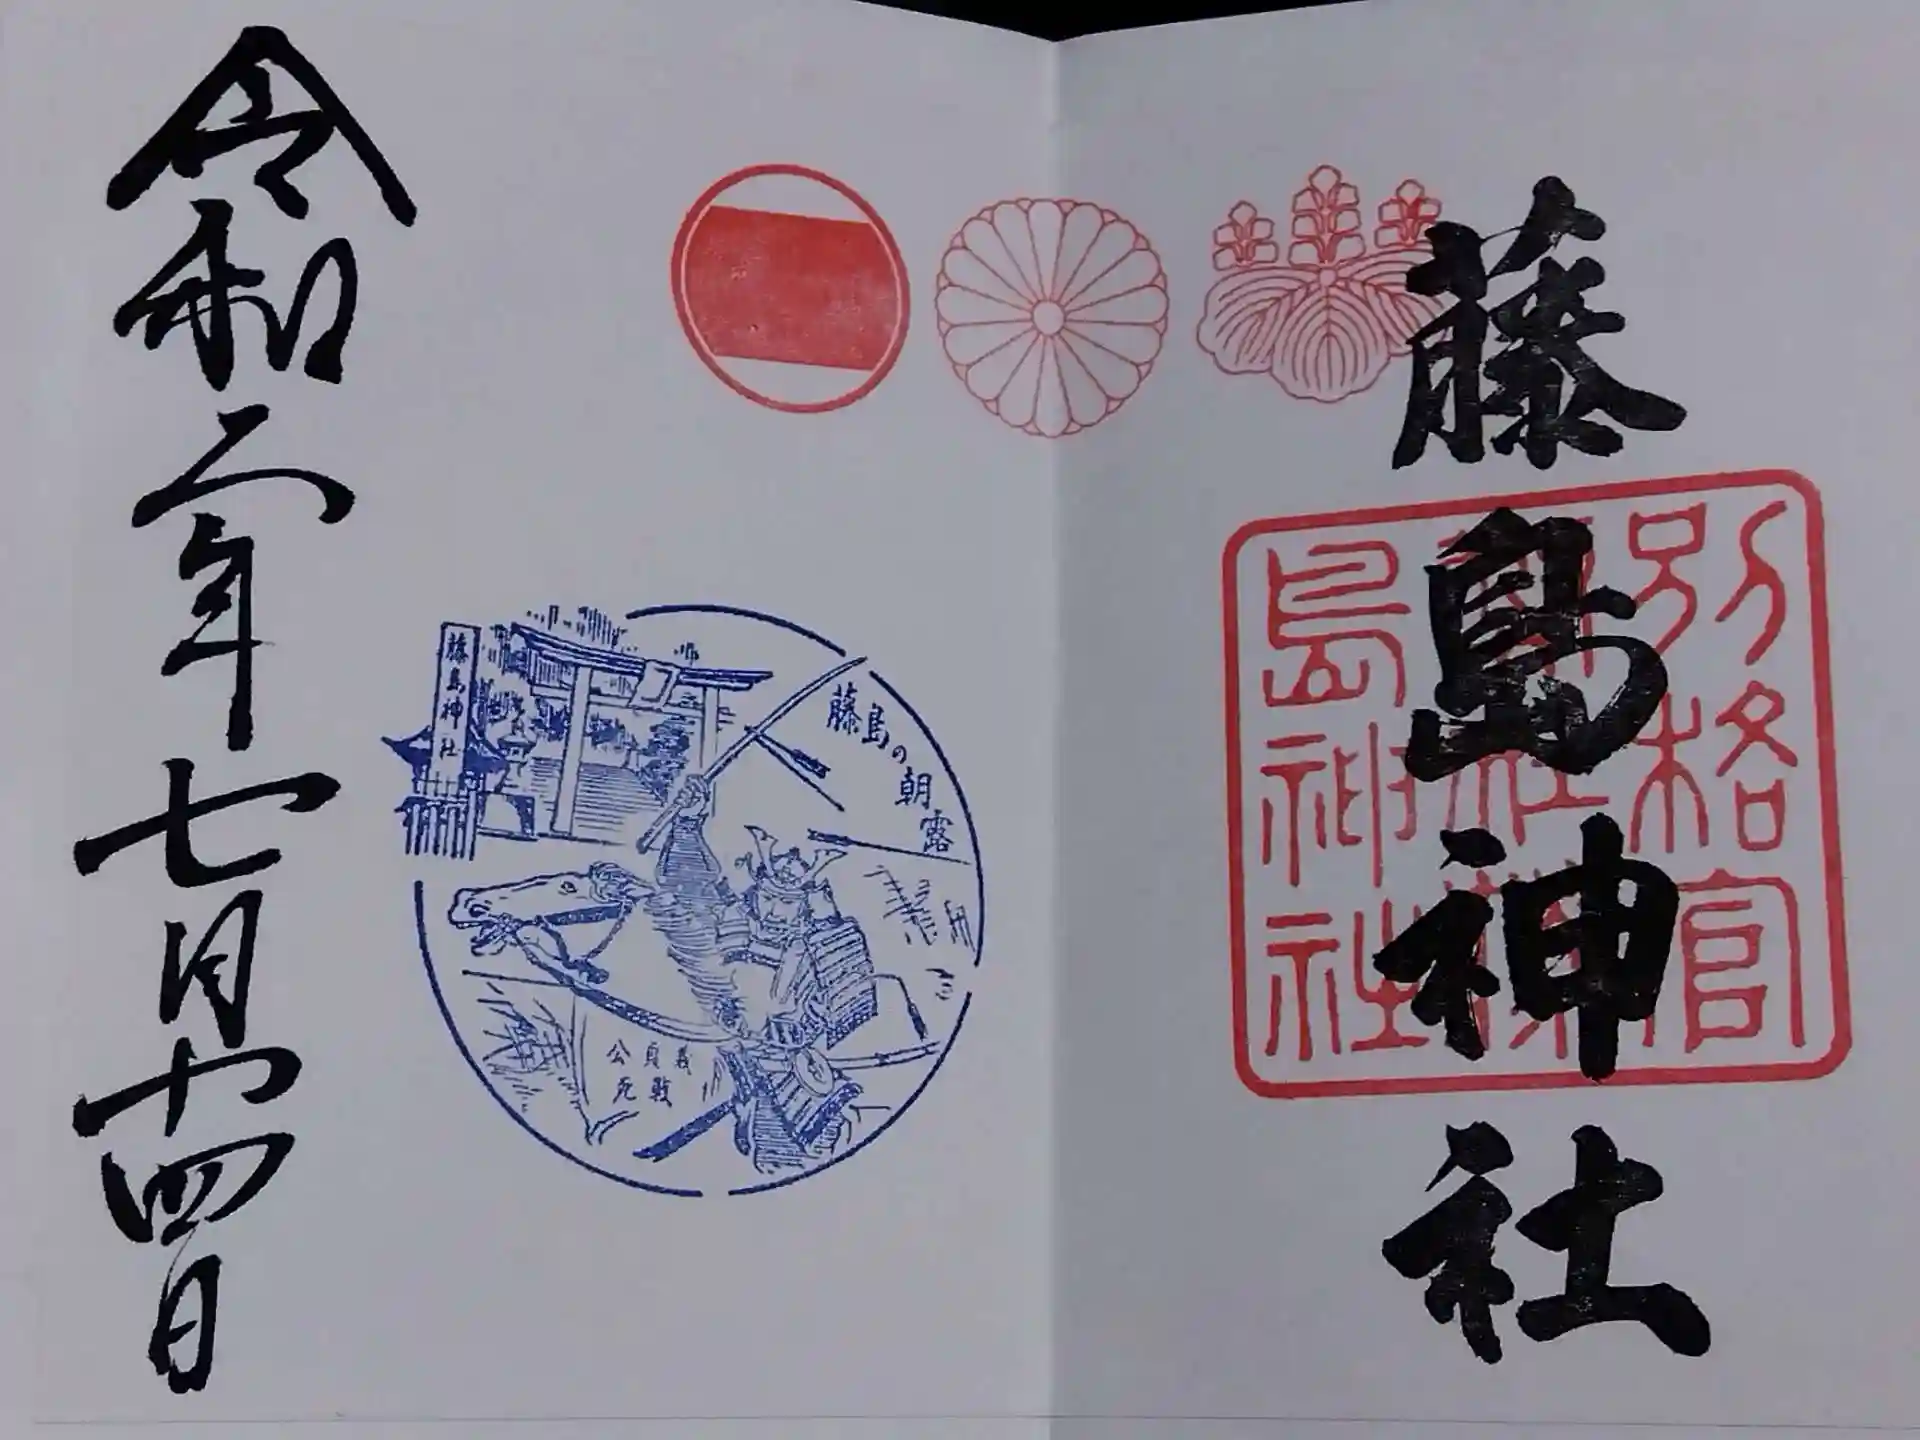 藤島神社
別格官
幣社藤
島神社
藤島神社
藤島の朝露
義貞公
戦死
令和二年七月十四日